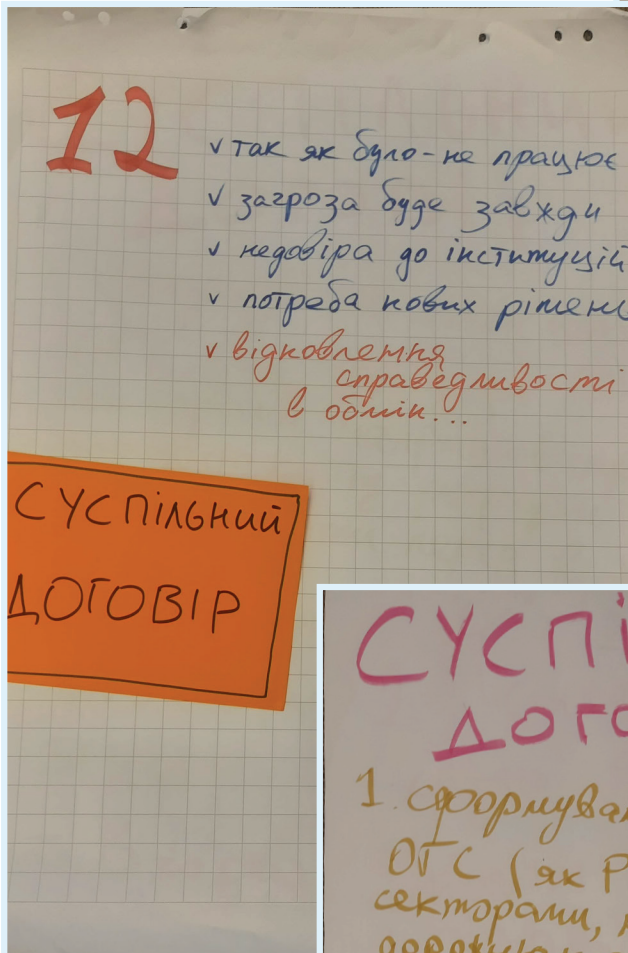 12
✓ так як було - не працює
✓ загроза буде завжди
✓ недовіра до інституцій
✓ потреба нових
✓ відновлення
справедливості
в обмін...
СУСПІЛЬНИЙ
ДОГОВІР
1.
ОГС (як
секторами,